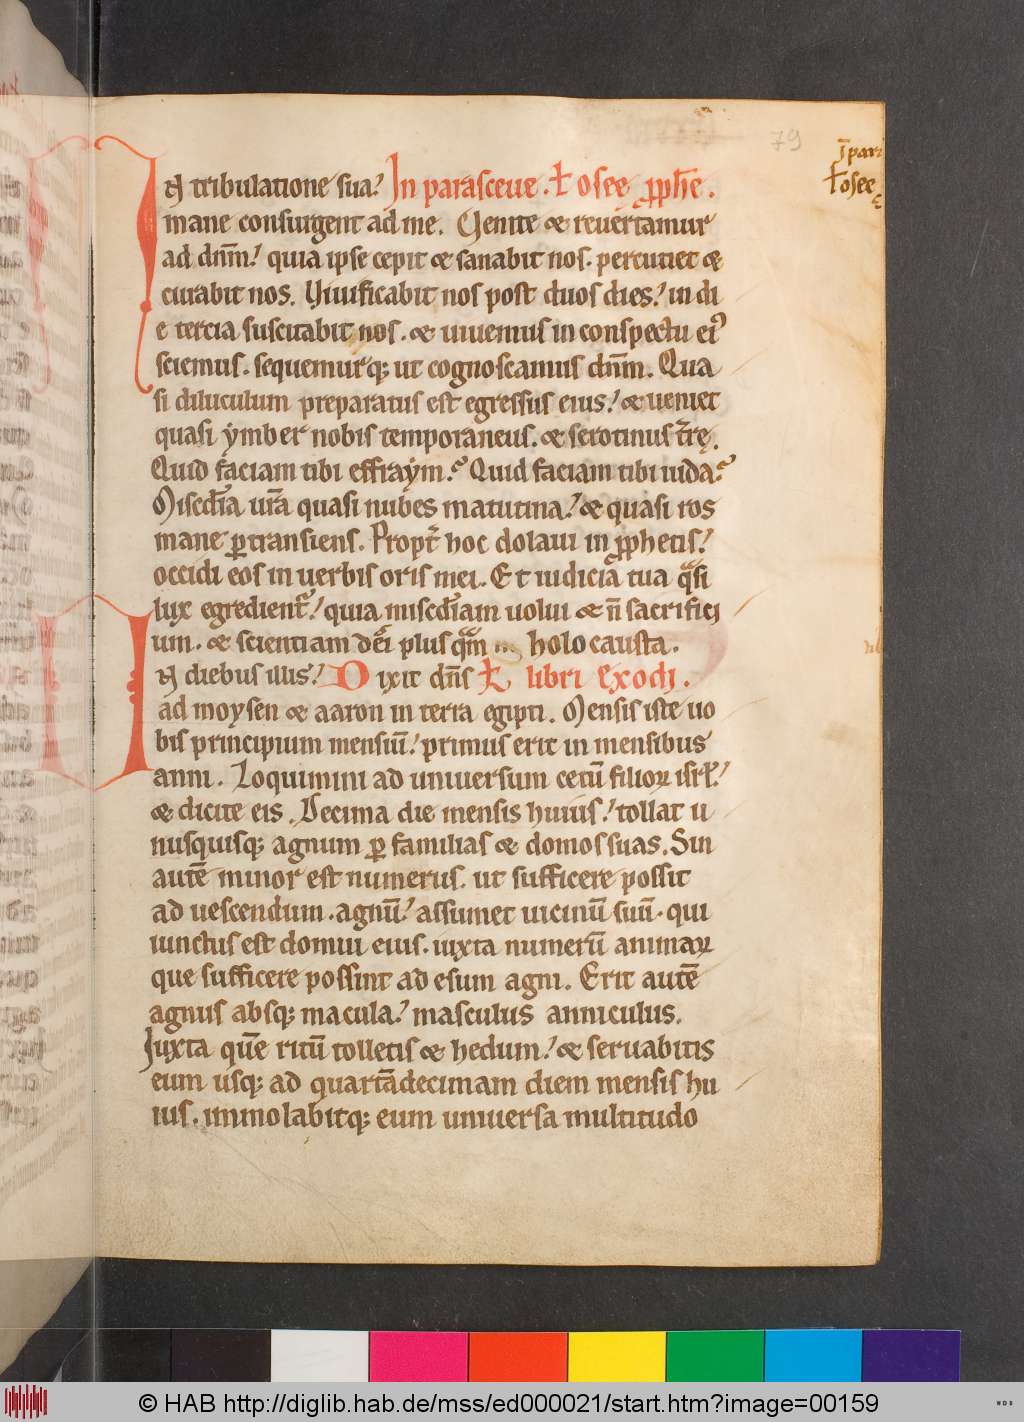 79
In tribulatione sua? In parasceue. ł osee pphe.
mane consurgent ad me. Uenite & reuertamur
ad dnm? quia ipse cepit & sanabit nos. percutiet &
curabit nos. Uiuificabit nos post duos dies? in di
e tercia suscitabit nos. & uiuemus in conspectu ei⁹
sciemus. sequemurq; ut cognoscamus dnm. Qua
si diluculum preparatus est egressus eius? & ueniet
quasi ymber nobis temporaneus. & serotinus tre.
Quid faciam tibi effraym? Quid faciam tibi iuda?
Miscdia ura quasi nubes matutina? & quasi ros
mane ptransiens. Propt hoc dolaui in pphetis?
occidi eos in uerbis oris mei. Et iudicia tua qsi
lux egredient? quia miscdiam uolui & n sacrifici
um. & scientiam dei plus qm holocausta.
In diebus illis? Dixit dns ł libri exodi.
ad moysen & aaron in terra egipti. Mensis iste uo
bis principium mensiū? primus erit in mensibus
anni. Loquimini ad uniuersum cetū filioꝝ isrł?
& dicite eis. Decima die mensis huius? tollat u
nusquisq; agnum p familias & domos suas. Sin
autē minor est numerus. ut sufficere possit
ad uescendum. agnū? assumet uicinū suū. qui
iunctus est domui eius. iuxta numerū animaꝝ
que sufficere possint ad esum agni. Erit autē
agnus absq; macula? masculus anniculus.
Juxta quē ritū tolletis & hedum? & seruabitis
eum usq; ad quartādecimam diem mensis hu
ius. immolabitq; eum uniuersa multitudo
J par
ł osee
© HAB http://diglib.hab.de/mss/ed000021/start.htm?image=00159